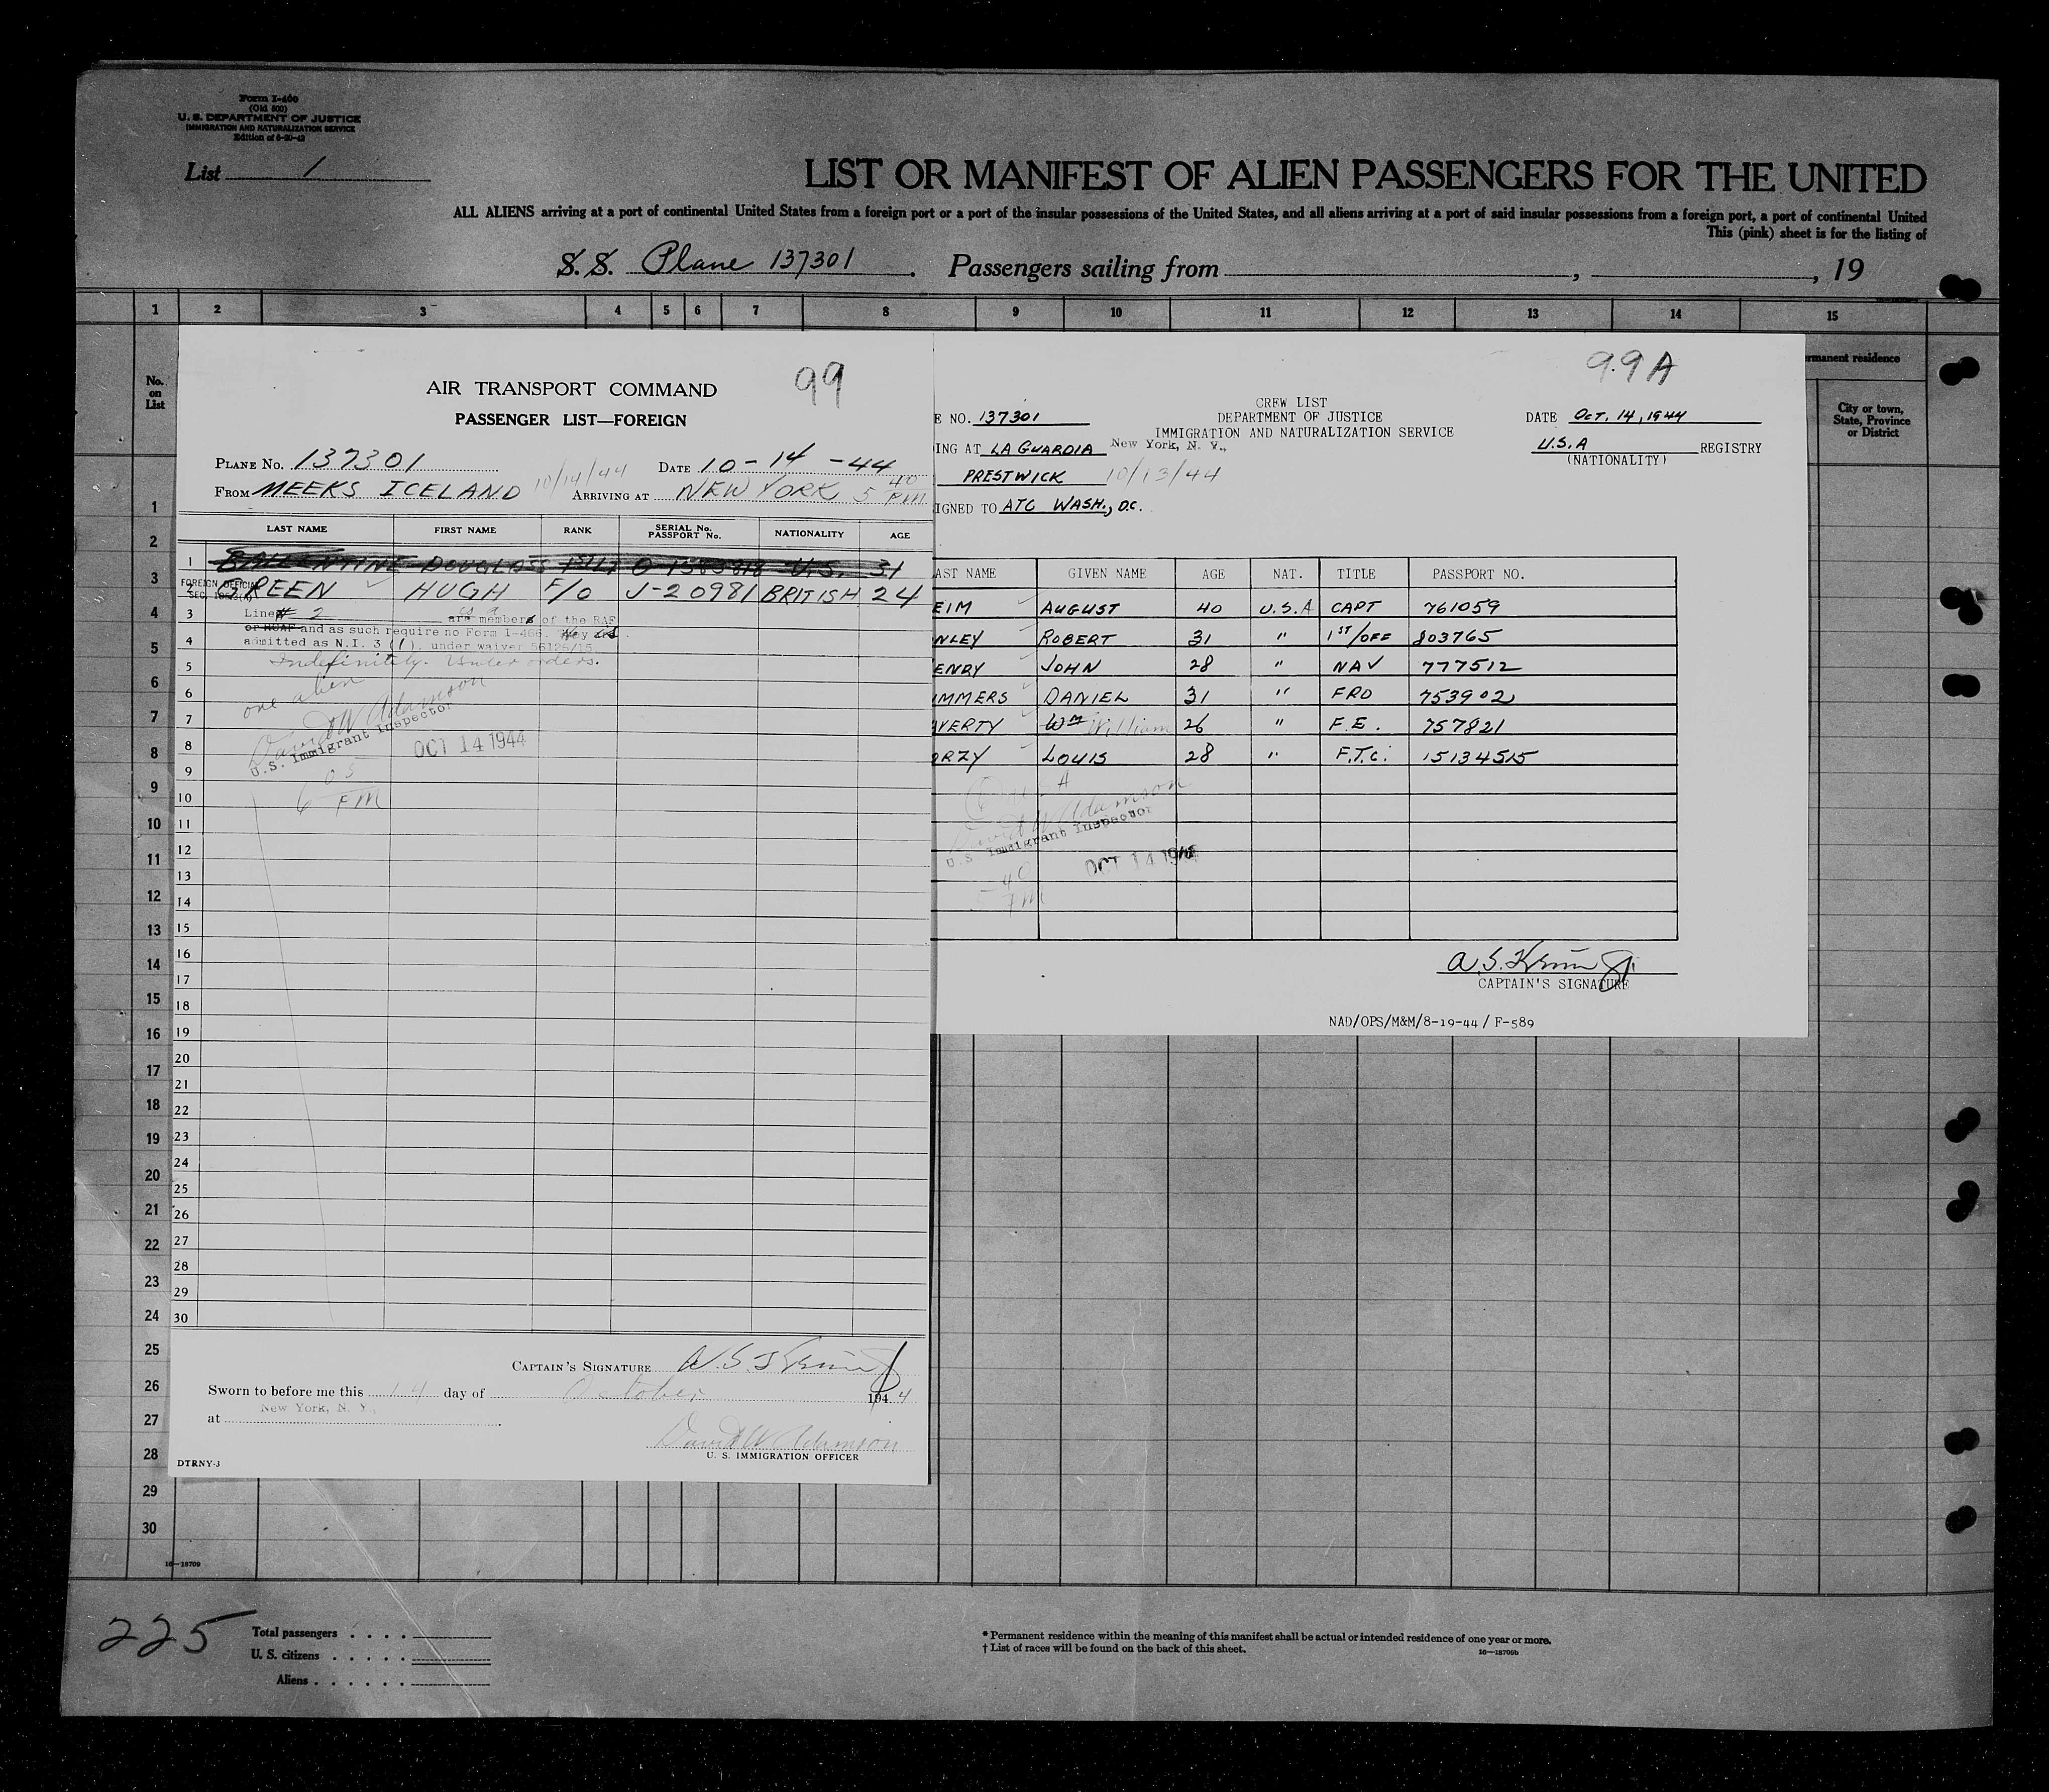 Form I-460
(Old 500)
U. S. DEPARTMENT OF JUSTICE
IMMIGRATION AND NATURALIZATION SERVICE
Edition of 6-20-42
List 1
LIST OR MANIFEST OF ALIEN PASSENGERS FOR THE UNITED
ALL ALIENS arriving at a port of continental United States from a foreign port or a port of the insular possessions of the United States, and all aliens arriving at a port of said insular possessions from a foreign port, a port of continental United
This (pink) sheet is for the listing of
S.S. Plane 137301 . Passengers sailing from , , 19
1 2 3 4 5 6 7 8 9 10 11 12 13 14 15
No. on List
rmanent residence
City or town, State, Province or District
99
AIR TRANSPORT COMMAND
PASSENGER LIST—FOREIGN
PLANE NO. 137301 DATE 10-14-44
10/14/44
FROM MEEKS ICELAND ARRIVING AT NEW YORK 5 40 PM
LAST NAME FIRST NAME RANK SERIAL No. PASSPORT No. NATIONALITY AGE
1 BALLENTINE DOUGLASS 1ST LT U.S. 31
FOREIGN OFFICIAL
2 GREEN HUGH F/O J-20981 BRITISH 24
3 Line # 2 is a are members of the RAF
or RCAF and as such require no Form I-466. They
4 admitted as N.I. 3 (1), under waiver 56125/15
5 Indefinitely. Under orders.
6 one alien
7 David W Adamson
U.S. Immigrant Inspector
8 OCT 14 1944
9 6 05
10 PM
11
12
13
14
15
16
17
18
19
20
21
22
23
24
25
26
27
28
29
30
CAPTAIN'S SIGNATURE
Sworn to before me this 14 day of October 1944
at New York, N. Y.
David W Adamson
U. S. IMMIGRATION OFFICER
DTRNY-3
99A
CREW LIST
DEPARTMENT OF JUSTICE
IMMIGRATION AND NATURALIZATION SERVICE
E NO. 137301 DATE OCT. 14, 1944
ING AT LA GUARDIA New York, N. Y., U.S.A REGISTRY
(NATIONALITY)
PRESTWICK 10/13/44
IGNED TO ATC WASH., D.C.
AST NAME GIVEN NAME AGE NAT. TITLE PASSPORT NO.
EIM AUGUST 40 U.S.A CAPT 761059
NLEY ROBERT 31 " 1ST/OFF 803765
ENRY JOHN 28 " NAV 777512
MMERS DANIEL 31 " FRO 753902
VERTY Wm William 26 " F.E. 757821
ORZY LOUIS 28 " F.T.C. 15134515
David W Adamson
U.S. Immigrant Inspector
OCT 14 1944
40
PM
CAPTAIN'S SIGNATURE
NAD/OPS/M&M/8-19-44 / F-589
1
2
3
4
5
6
7
8
9
10
11
12
13
14
15
16
17
18
19
20
21
22
23
24
25
26
27
28
29
30
16—18709
225
Total passengers
U. S. citizens
Aliens
* Permanent residence within the meaning of this manifest shall be actual or intended residence of one year or more.
† List of races will be found on the back of this sheet.
16—18709b